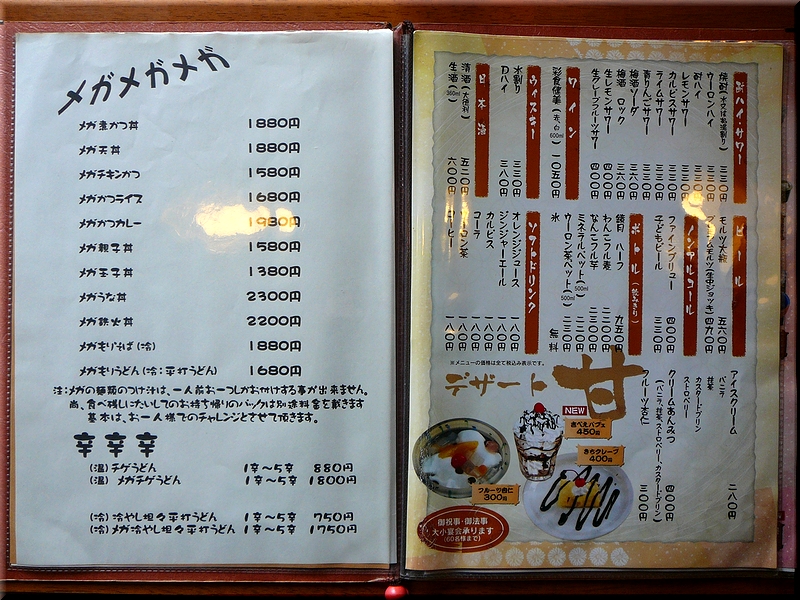 メガメガメガ
メガ煮かつ丼 1880円
メガ天丼 1880円
メガチキンかつ 1580円
メガかつライス 1680円
メガかつカレー 1980円
メガ親子丼 1580円
メガ玉子丼 1380円
メガうな丼 2300円
メガ鉄火丼 2200円
メガもりそば(冷) 1880円
メガもりうどん(冷:平打うどん) 1680円
注:メガの麺類のつけ汁は、一人前お一つしかお付けする事が出来ません。
尚、食べ残しいたいしてのお持ち帰りのパックは別途料金を戴きます
基本は、お一人様でのチャレンジとさせて頂きます。
辛辛辛
(温) チゲうどん 1辛~5辛 880円
(温) メガチゲうどん 1辛~5辛 1800円
(冷) 冷やし坦々平打うどん 1辛~5辛 750円
(冷) メガ冷やし坦々平打うどん 1辛~5辛 1750円
酎ハイ・サワー
ウーロンハイ 三三〇円
酎ハイ 三三〇円
レモンサワー 三三〇円
カルピスサワー 三三〇円
ライムサワー 三三〇円
青りんごサワー 三三〇円
梅酒ソーダ 三六〇円
梅酒 ロック 三六〇円
生レモンサワー 四〇〇円
生グレープフルーツサワー 四〇〇円
ワイン
彩食健美(赤、白)600ml 一〇五〇円
ウィスキー
水割り 三三〇円
Dハイ 三八〇円
日本酒
清酒(大徳利) 五二〇円
生酒(360ml) 六〇〇円
ビール
モルツ大瓶 五六〇円
プレミアムモルツ(生中ジョッキ) 四九〇円
ノンアルコール
ファインブリュー 四〇〇円
子どもビール 三三〇円
ボトル(飲みきり)
鏡月 ハーフ 九五〇円
わんこフル麦 二二〇〇円
なんこフル芋 二二〇〇円
ミネラルペット(500ml) 二三〇円
ウーロン茶ペット(500ml) 二三〇円
氷 無料
ソフトドリンク
オレンジジュース 一八〇円
ジンジャーエール 一八〇円
カルピス 一八〇円
コーラ 一八〇円
ウーロン茶 一八〇円
コーヒー 一八〇円
※メニューの価格は全て税込み表示です。
デザート 甘
アイスクリーム 二八〇円
バニラ
抹茶
カスタードプリン
ストロベリー
クリームあんみつ 四〇〇円
(バニラ、抹茶、ストロベリー、カスタードプリン)
フルーツ杏仁 三〇〇円
NEW
きべえパフェ
450円
きちクレープ
400円
フルーツ杏仁
300円
御祝事・御法事
大小宴会承ります
(60名様まで)